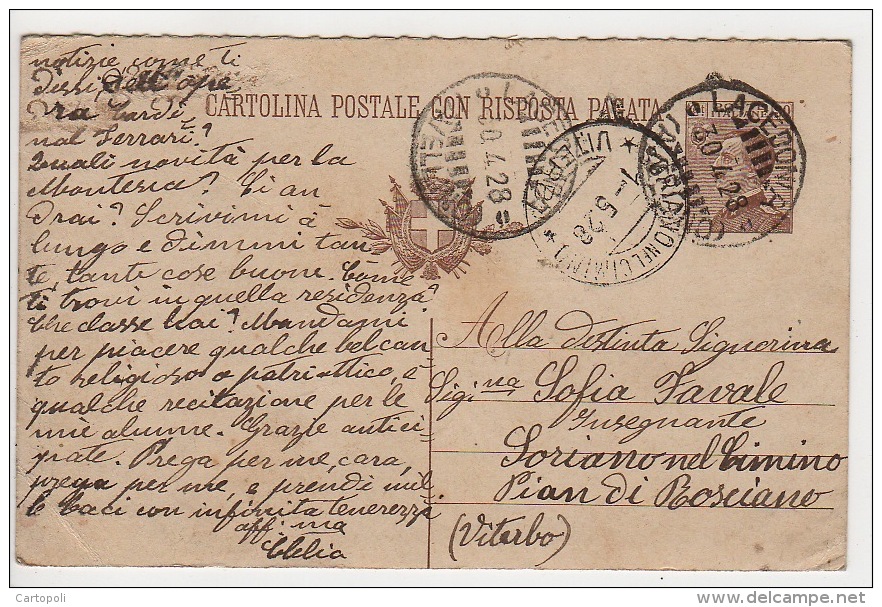 notizie come ti
dissi dell'ope
ra Cardi
nal Ferrari?
Quali novità per la
Montesca? Ci an
drai? Scrivimi à
lungo e dimmi tan
te, tante cose buone. Come
ti trovi in quella residenza?
Che classe hai? Mandami
per piacere qualche bel can
to religioso o patriottico, e
qualche recitazione per le
mie alunne. Grazie antici=
piate. Prega per me, cara,
prega per me, e prendi mil
le baci con infinita tenerezza
aff.ma
Clelia
CARTOLINA POSTALE CON RISPOSTA PAGATA
LACEDONIA
30.4.28
LACEDONIA
30.4.28
VITERBO
1-5.28
SORIANO NEL CIMINO
Alla distinta Signorina
Sig.na Sofia Favale
Insegnante
Soriano nel Cimino
Pian di Rosciano
(Viterbo)
Cartopoli
delcampe.net